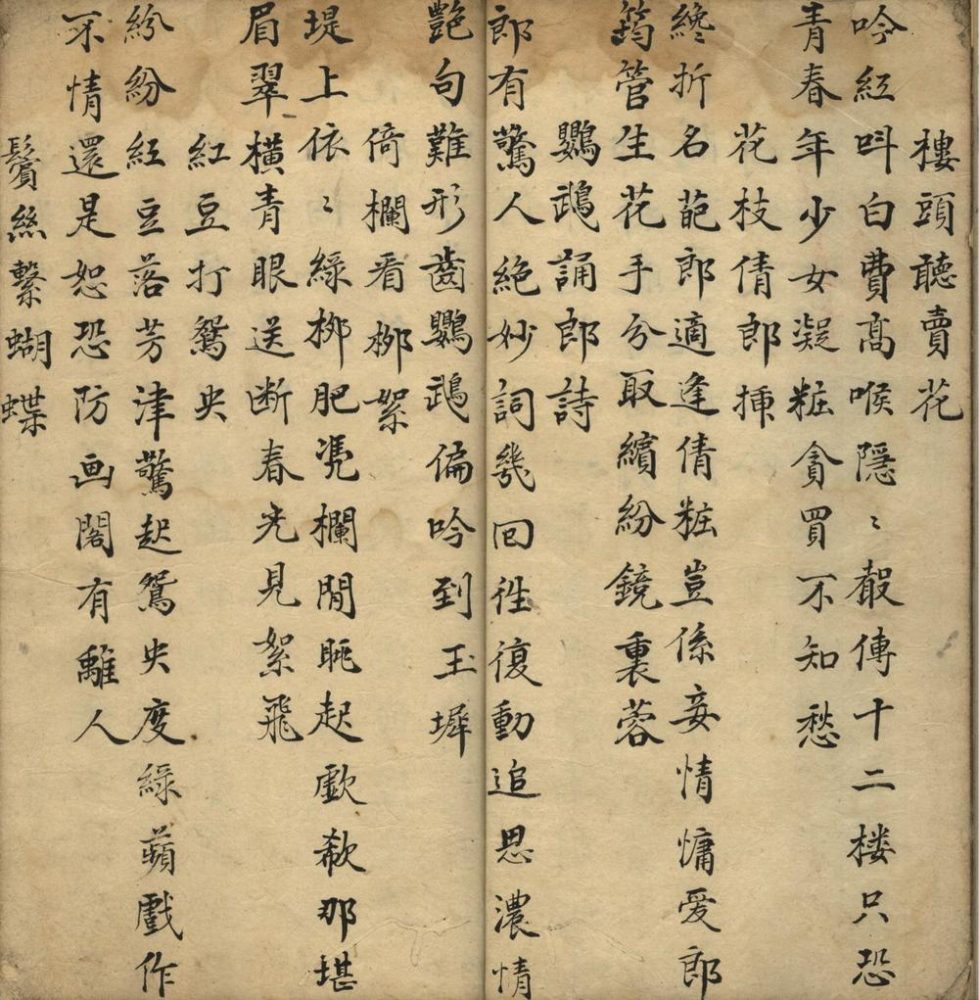 樓頭聽賣花
吟紅呌白費髙喉隱〻殸傳十二楼只恐
青春年少女凝粧貪買不知愁
花枝倩郎揷
纔折名葩郎適逢倩粧豈係妾情慵爱郎
筠管生花手分取繽紛鏡裏蓉
鸚鵡誦郎詩
郎有驚人絕妙詞幾回徃復動追思濃情
艷句難形齒鸚鵡偏吟到玉墀
倚欄看栁絮
堤上依〻綠栁肥凴欄閒眺起歔欷那堪
眉翠橫青眼送断春光見絮飛
紅豆打鴛央
紛紛紅豆落芳津驚起鴛央度綠蘋戲作
不情還是恕恐防画閣有離人
鬢絲繫蝴蝶